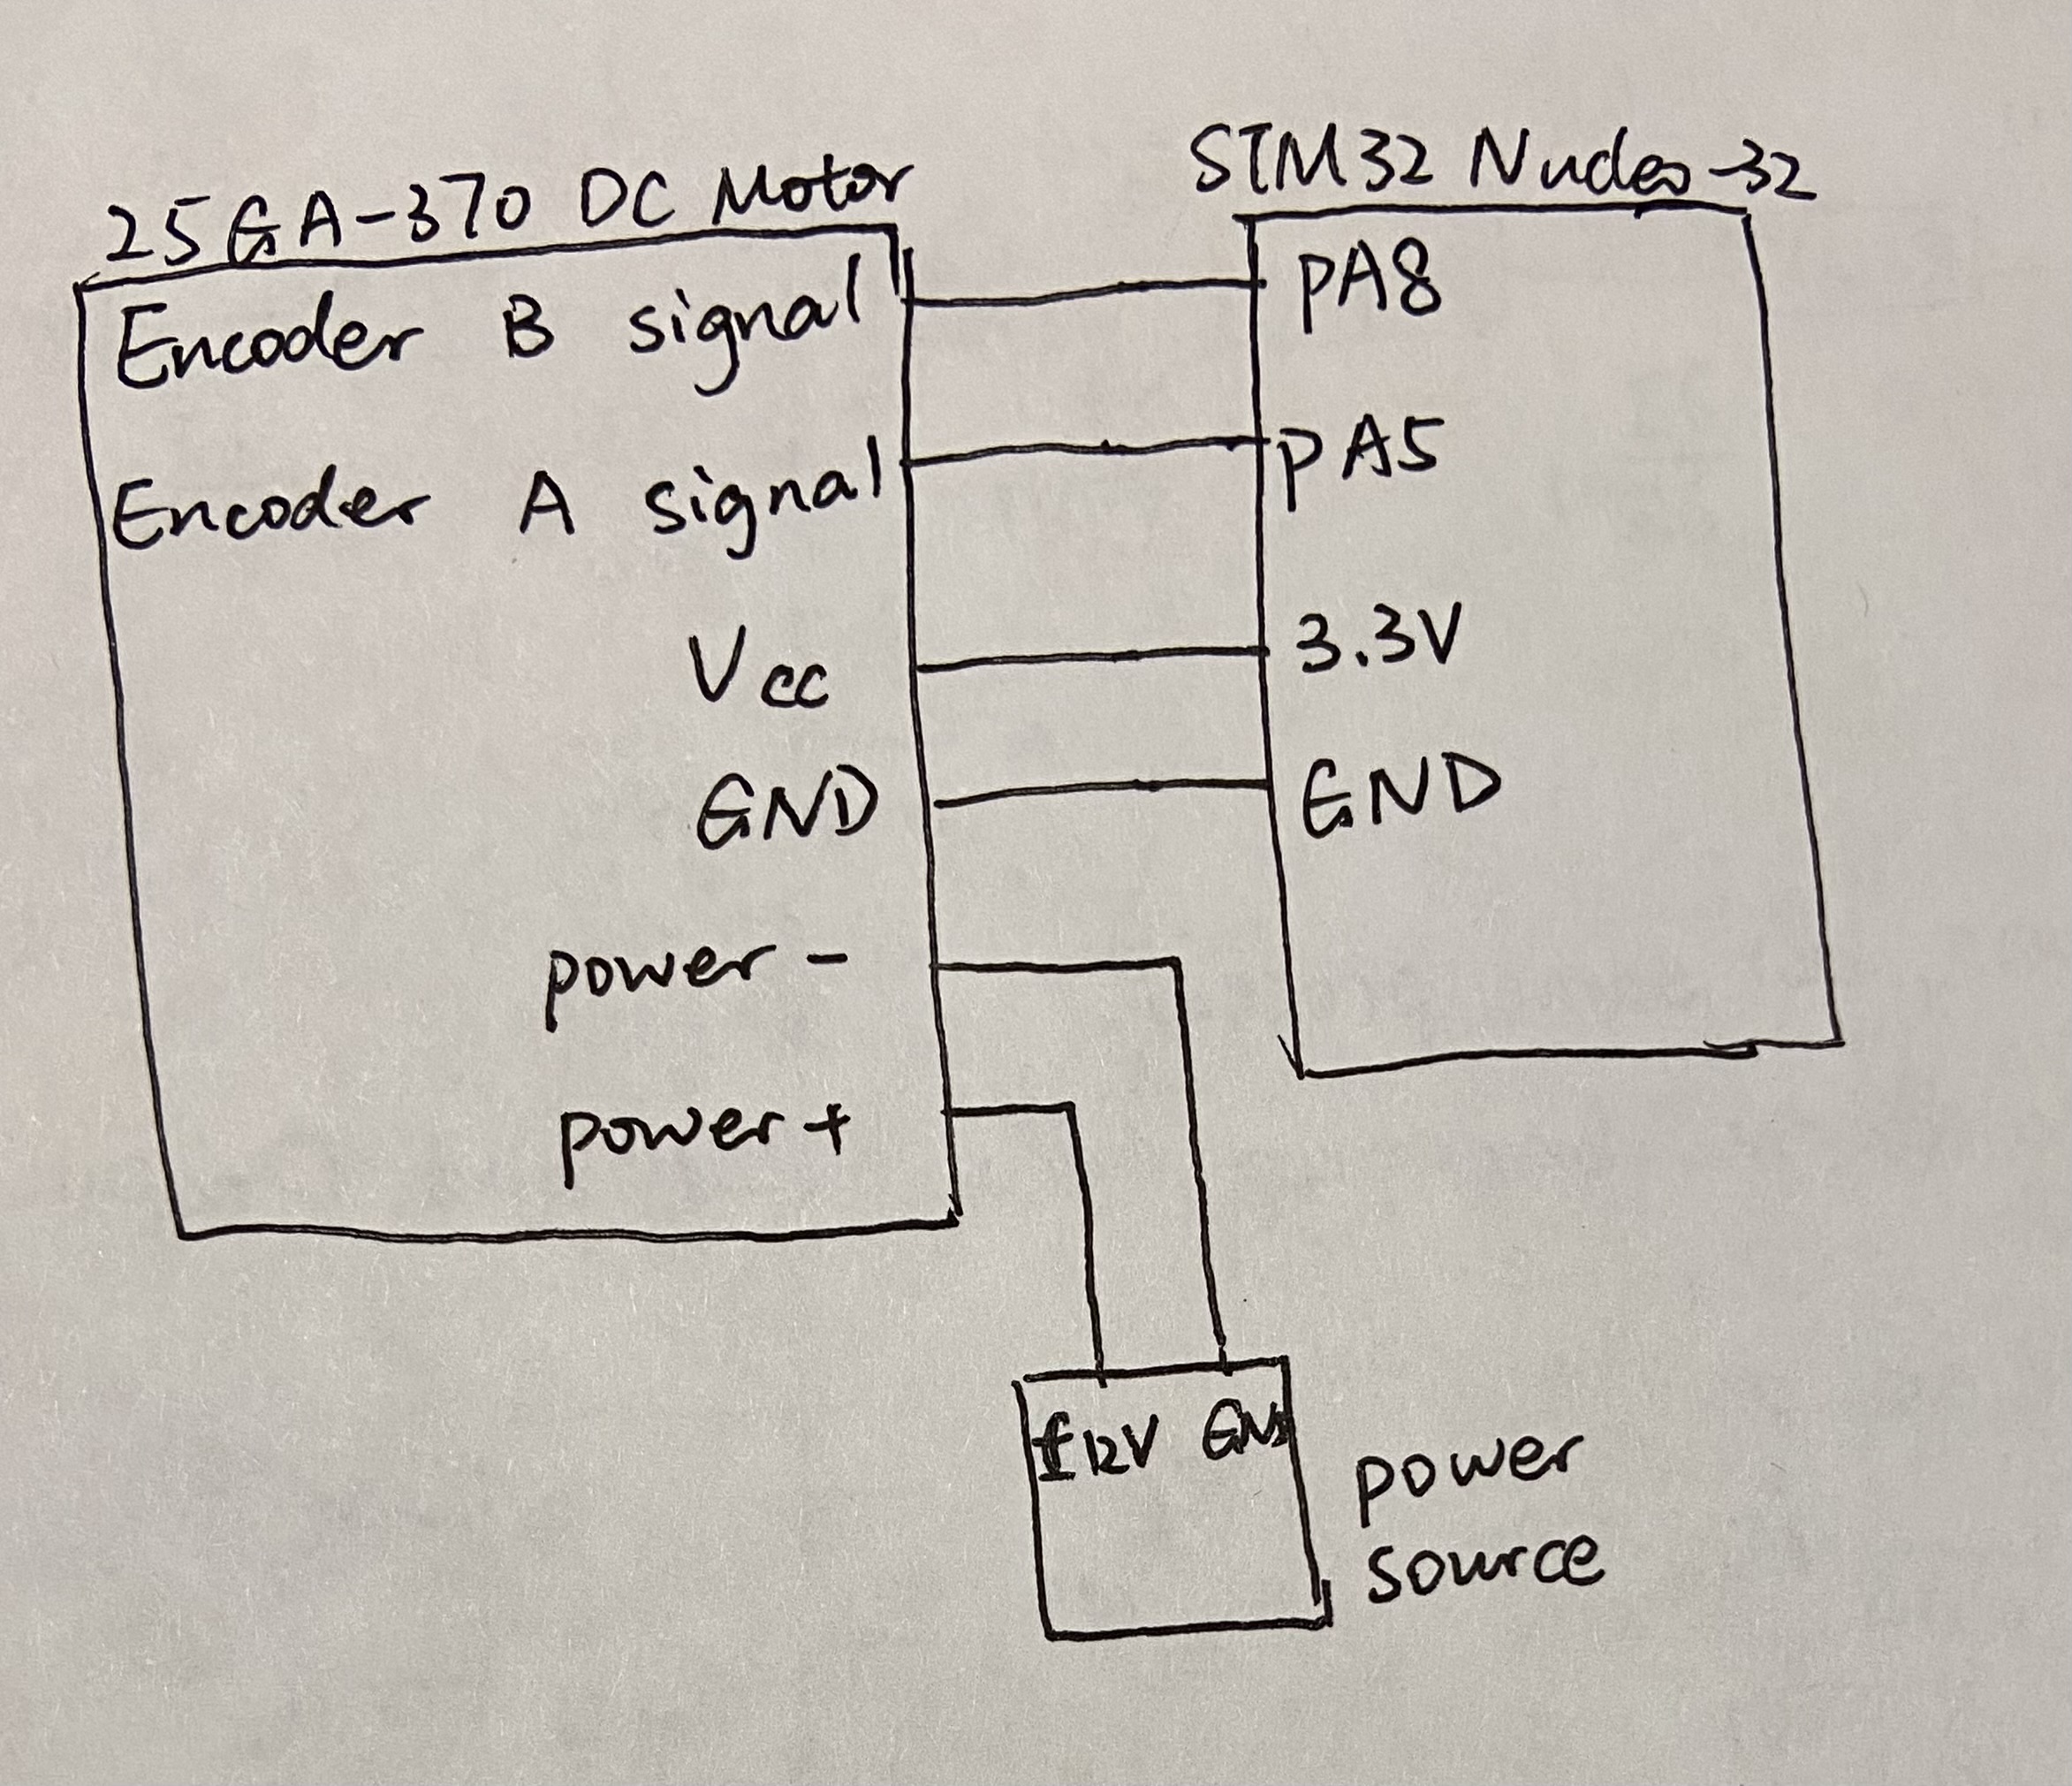 25GA-370 DC Motor
Encoder B signal
Encoder A signal
Vcc
GND
power -
power +
STM32 Nucleo-32
PA8
PA5
3.3V
GND
12V GND
power
source